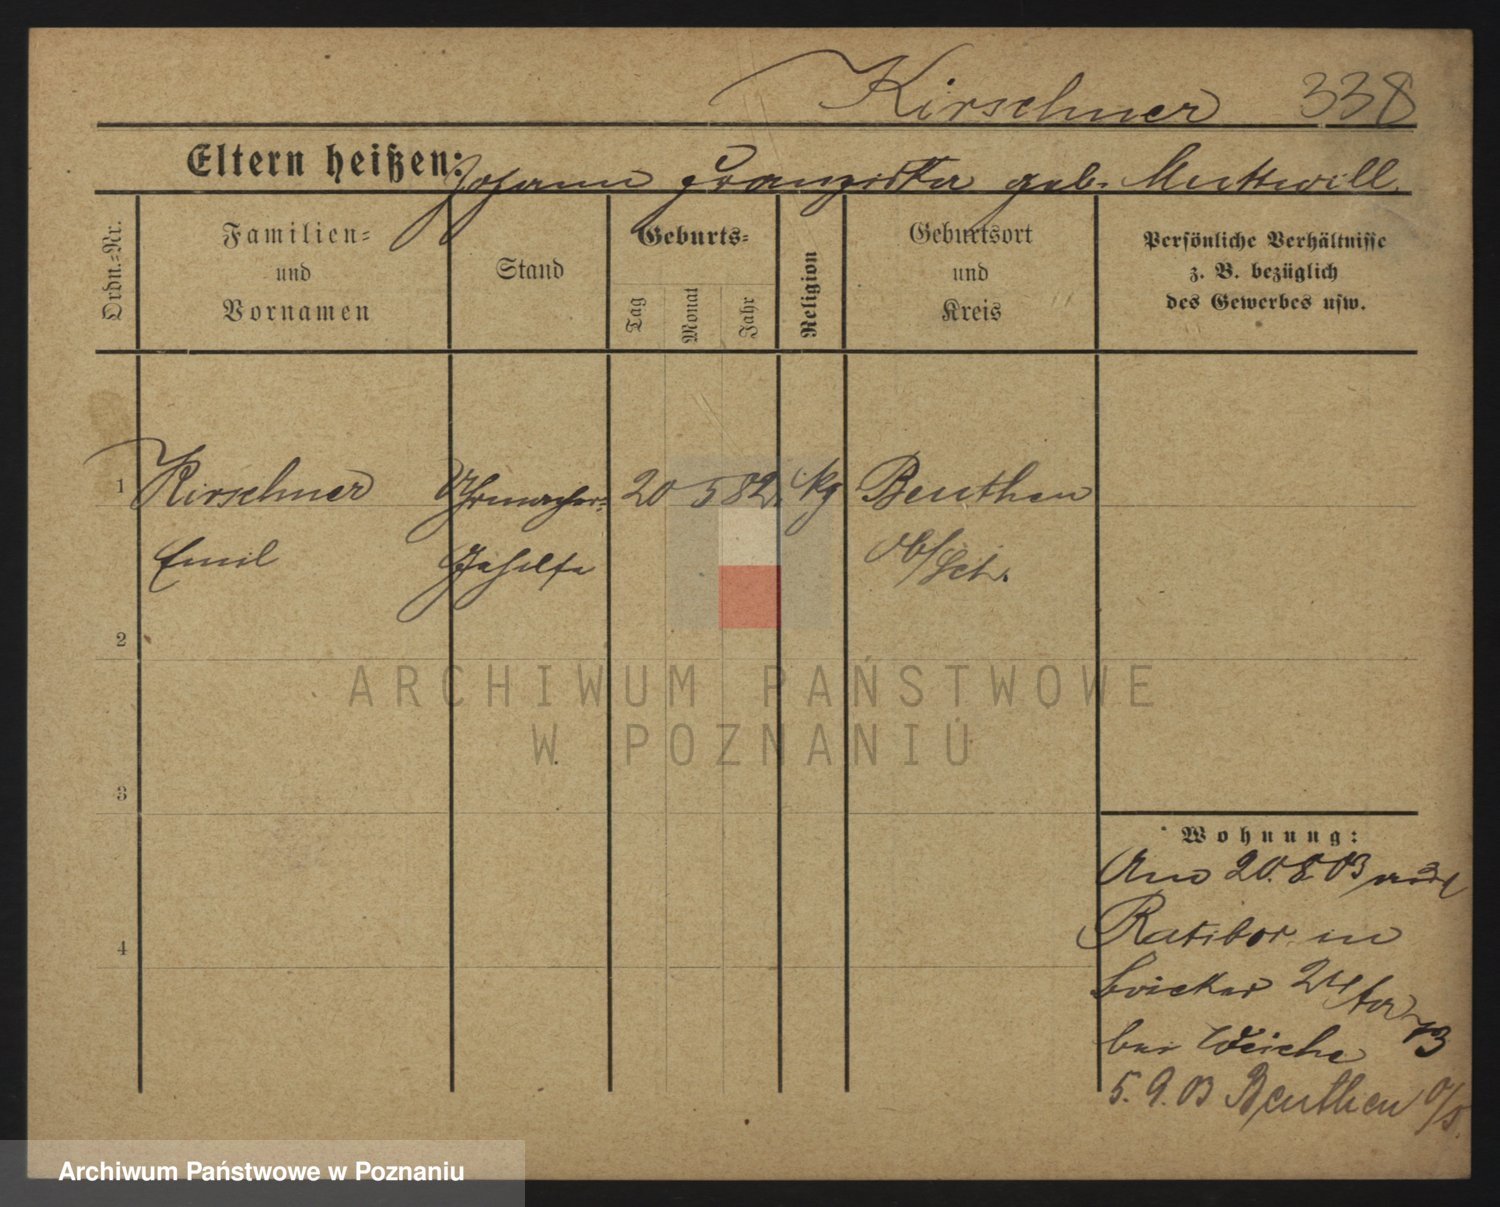 Kirschner 338
Eltern heißen: Johann Franziska geb. Muttwill
Ordn.-Nr.
Familien- und Vornamen
Stand
Geburts-
Tag
Monat
Jahr
Religion
Geburtsort und Kreis
Persönliche Verhältnisse
z. B. bezüglich
des Gewerbes usw.
1 Kirschner Uhrmacher- 20 5 82. kg Beuthen
Emil Gehilfe Ob/Sch.
2
ARCHIWUM PAŃSTWOWE
W POZNANIU
3
Wohnung:
Am 20.8.03
Ratibor in
4
24/ 03
bei Weiche
5. 9. 03 Beuthen O/S.
Archiwum Państwowe w Poznaniu